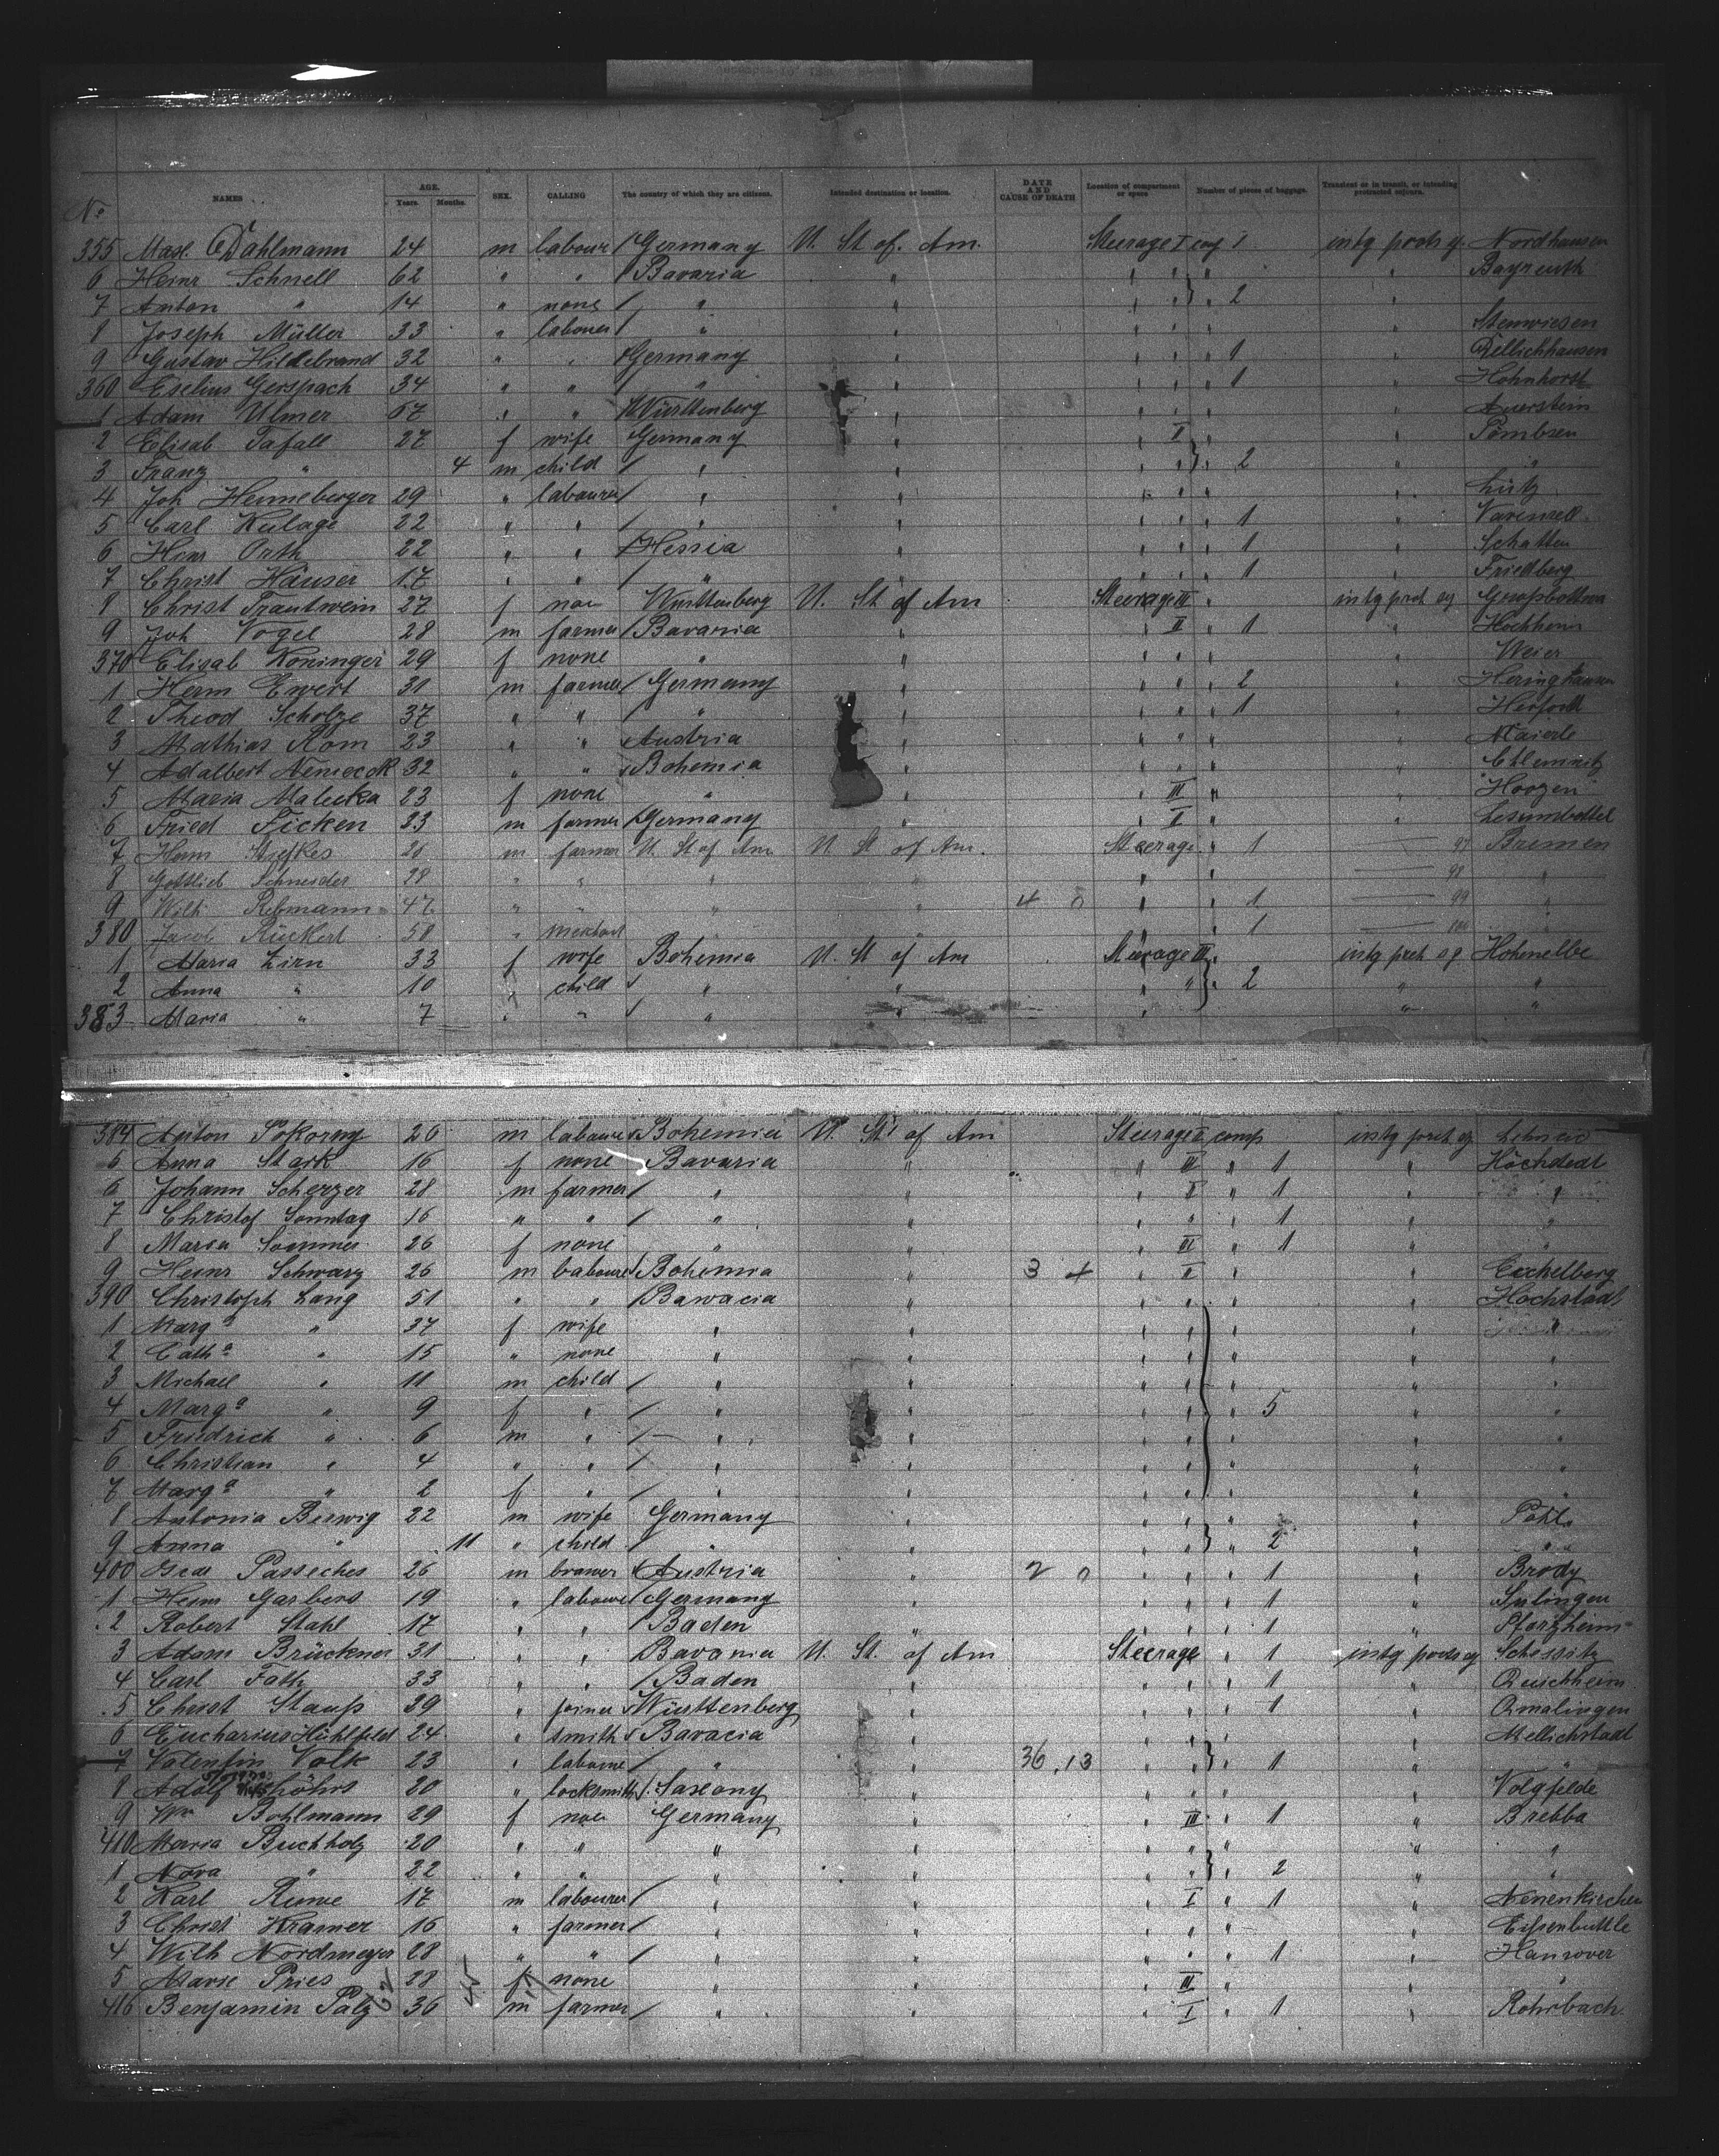 No NAMES AGE. Years. Months. SEX. CALLING The country of which they are citizens. Intended destination or location. DATE AND CAUSE OF DEATH Location of compartment or space Number of pieces of baggage. Transient or in transit, or intending protracted sojourn.
355 Max Dahlmann 24 m labour / Germany U. St of. Am. Steerage I comp 1 intg protr sj. Nordhausen
6 Heinr Schnell 62 " " / Bavaria " " " " " Bayreuth
7 Anton " 14 " none / " " " " " 2 "
8 Joseph Müller 33 " labourer / " " " " " " Stenwiesen
9 Gustav Hildebrand 32 " " / Germany " " " " 1 " Rellichhausen
360 Eselius Gerspach 34 " " / " " " " " 1 " Hohnhorst
1 Adam Ulmer 67 " " / Württenberg " " " " " Auerstein
2 Elisab Tafall 27 f wife Germany " " I " " Pömbsen
3 Franz " 4 m child / " " " " " 2 " "
4 Joh Henneberger 29 " labourer / " " " " " "
5 Carl Kulage 22 " " / " " " " " 1 " Varensell
6 Heinr Orth 22 " " / Hessia " " " " 1 " Schotten
7 Christ Häuser 17 " " / " " " " " 1 " Friedberg
8 Christ Trautwein 27 f non Württenberg U. St of Am Steerage III " intg prot sj Grossbottwar
9 Joh Vogel 28 m farmer / Bavaria " " II " 1 " Hochheim
370 Elisab Koninger 29 f none " " " " " " Weier
1 Herm Ewert 31 m farmer / Germany " " " " 2 " Heringhausen
2 Theod Scholze 37 " " / " " " " " 1 " Herford
3 Mathias Rom 23 " " / Austria " " " " " Maierle
4 Adalbert Nemecek 32 " " / Bohemia " " " " "
5 Maria Malecka 23 f none " " " III " "
6 Fried Ficken 23 m farmer / Germany " " I " " Lesumbottel
7 Herm 28 m farmer U. St of Am U. St of Am. Steerage " 1 97 Bremen
8 Gottlieb Schneider 28 " " " " " " 98 "
9 Wilh Rebmann 47 " " " " 4 0 " " 1 99 "
380 Jacob Rückert 58 " " 1 100 "
1 Maria Zirn 33 f wife Bohemia U. St of Am Steerage III " intg prot sj Hohenelbe
2 Anna " 10 " child / " " " " " 2 " "
383 Maria " 7 " " / " " " " "
384 Anton Pokorny 26 m labourer / Bohemia U. St of Am Steerage I comp intg prot sj
5 Anna Stark 16 f none Bavaria " " III " 1 " Höchstedt
6 Johann Scherzer 28 m farmer / " " " I " 1 " "
7 Christof Sonntag 16 " " / " " " " " 1 " "
8 Maria Sommer 26 f none " " " III " 1 " "
9 Heinr Schwarz 26 m labourer / Bohemia " 3 4 " I " " Eichelberg
390 Christoph Lang 51 " " / Bavaria " " " " " Hochstadt
1 Marga " 37 f wife " " " " " "
2 Catha " 15 " none " " " " " " "
3 Michael " 11 m child / " " " " " " "
4 Marga " 9 f " / " " " " " 5 " "
5 Friedrich " 6 m " / " " " " " " "
6 Christian " 4 " " / " " " " " " "
7 Marga " 2 f " / " " " " " " "
8 Antonia Berwig 22 m wife Germany " " " " " Pöhl
9 Anna " 11 " child / " " " " " 2 " "
400 Isac Passeches 26 m brewer / Austria " 2 0 " " " 1 " Brody
1 Heinr Garbers 19 " labourer / Germany " " " " 1 " Sulingen
2 Robert Stahl 17 " " / Baden " " " " 1 " Pforzheim
3 Adam Brückner 31 " " / Bavaria U. St. of Am Steerage " 1 intg protr sj Schesslitz
4 Carl Fath 33 " " / Baden " " " " 1 "
5 Christ Stauss 29 " joiner / Württenberg " " " " 1 "
6 Eucharius Hühlfeld 24 " smith / Bavaria " " " " " Mellichstadt
7 Valentin Volk 23 " labourer / " " 36 . 13 " " " 1 " "
8 Adolf Löhrs 20 " locksmith / Saxony " " " " " Volgfelde
9 Wm Bohlmann 29 f non Germany " " III " 1 " Brebba
410 Maria Buchholz 20 " " " " " " " " "
1 Nora " 22 " " " " " " " 2 " "
2 Karl Runne 17 m labourer / " " " I " 1 " Neuenkirchen
3 Christ Kramer 16 " farmer / " " " " " " Eissenbuttle
4 Wilh Nordmeyer 28 " " / " " " " " 1 " Hannover
5 Marie Pries 28 f none " " " III " " "
416 Benjamin Palz 36 m farmer / " " " I " 1 " Rohrbach